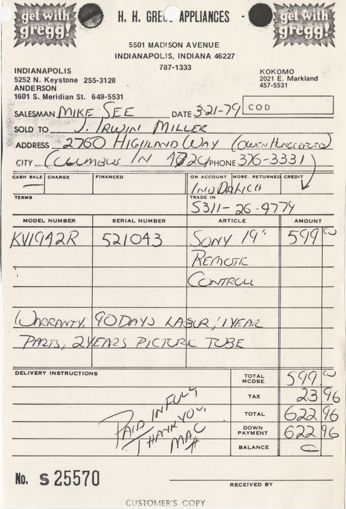 get with gregg!
H. H. GREGG APPLIANCES -
get with gregg!
5501 MADISON AVENUE
INDIANAPOLIS, INDIANA 46227
787-1333
INDIANAPOLIS
5252 N. Keystone 255-3128
ANDERSON
1601 S. Meridian St. 649-5531
KOKOMO
2021 E. Markland
457-5531
SALESMAN MIKE SEE DATE 3-21-79 COD
SOLD TO J. IRWIN MILLER
ADDRESS 2760 HIGHLAND WAY (OWEN HUNGERFORD)
CITY COLUMBUS IN PHONE 376-3331)
CASH SALE CHARGE FINANCED ON ACCOUNT MDSE. RETURNED CREDIT
TERMS TRADE IN
5311-26-9774
MODEL NUMBER SERIAL NUMBER ARTICLE AMOUNT
KV1942R 521043 SONY 19" 599 00
REMOTE
CONTROL
WARRANTY. 90 DAYS LABOR, 1 YEAR
PARTS, 2 YEARS PICTURE TUBE
DELIVERY INSTRUCTIONS
TOTAL MCDSE. 599 00
TAX 23 96
TOTAL 622 96
DOWN PAYMENT 622 96
BALANCE 0
PAID IN FULL
THANK YOU,
MAC
No. S 25570
RECEIVED BY
CUSTOMER'S COPY